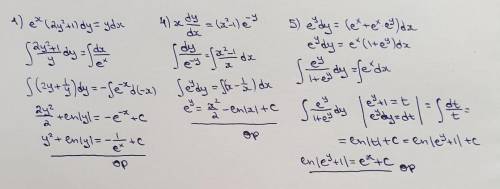 1) eˣ(2y²+1)dy = ydx
∫ (2y²+1)/y dy = ∫ dx/eˣ
∫(2y+1/y)dy = -∫e⁻ˣd(-x)
2y²/2 + ln|y| = -e⁻ˣ+C
y²+ln|y| = -1/eˣ +C
OP
4) x dy/dx = (x²-1)e⁻ʸ
∫ dy/e⁻ʸ = ∫ (x²-1)/x dx
∫eʸdy = ∫(x-1/x)dx
eʸ = x²/2 - ln|x|+C
OP
5) eʸdy = (eˣ+eˣ·eʸ)dx
eʸdy = eˣ(1+eʸ)dx
∫ eʸ/(1+eʸ) dy = ∫eˣdx
∫ eʸ/(1+eʸ) dy | eʸ+1=t eʸdy=dt | = ∫ dt/t =
= ln|t|+C = ln|eʸ+1|+C
ln|eʸ+1| = eˣ+C OP